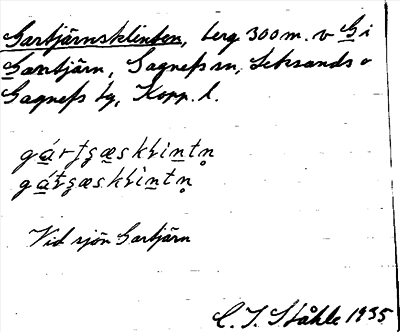 Gartjärnsklinten, berg 300 m. v G i
Gartjärn, Gagnefs sn, Leksands o
Gagnefs tg, Kopp. l.
Vid sjön Gartjärn
C. I. Ståhle 1935